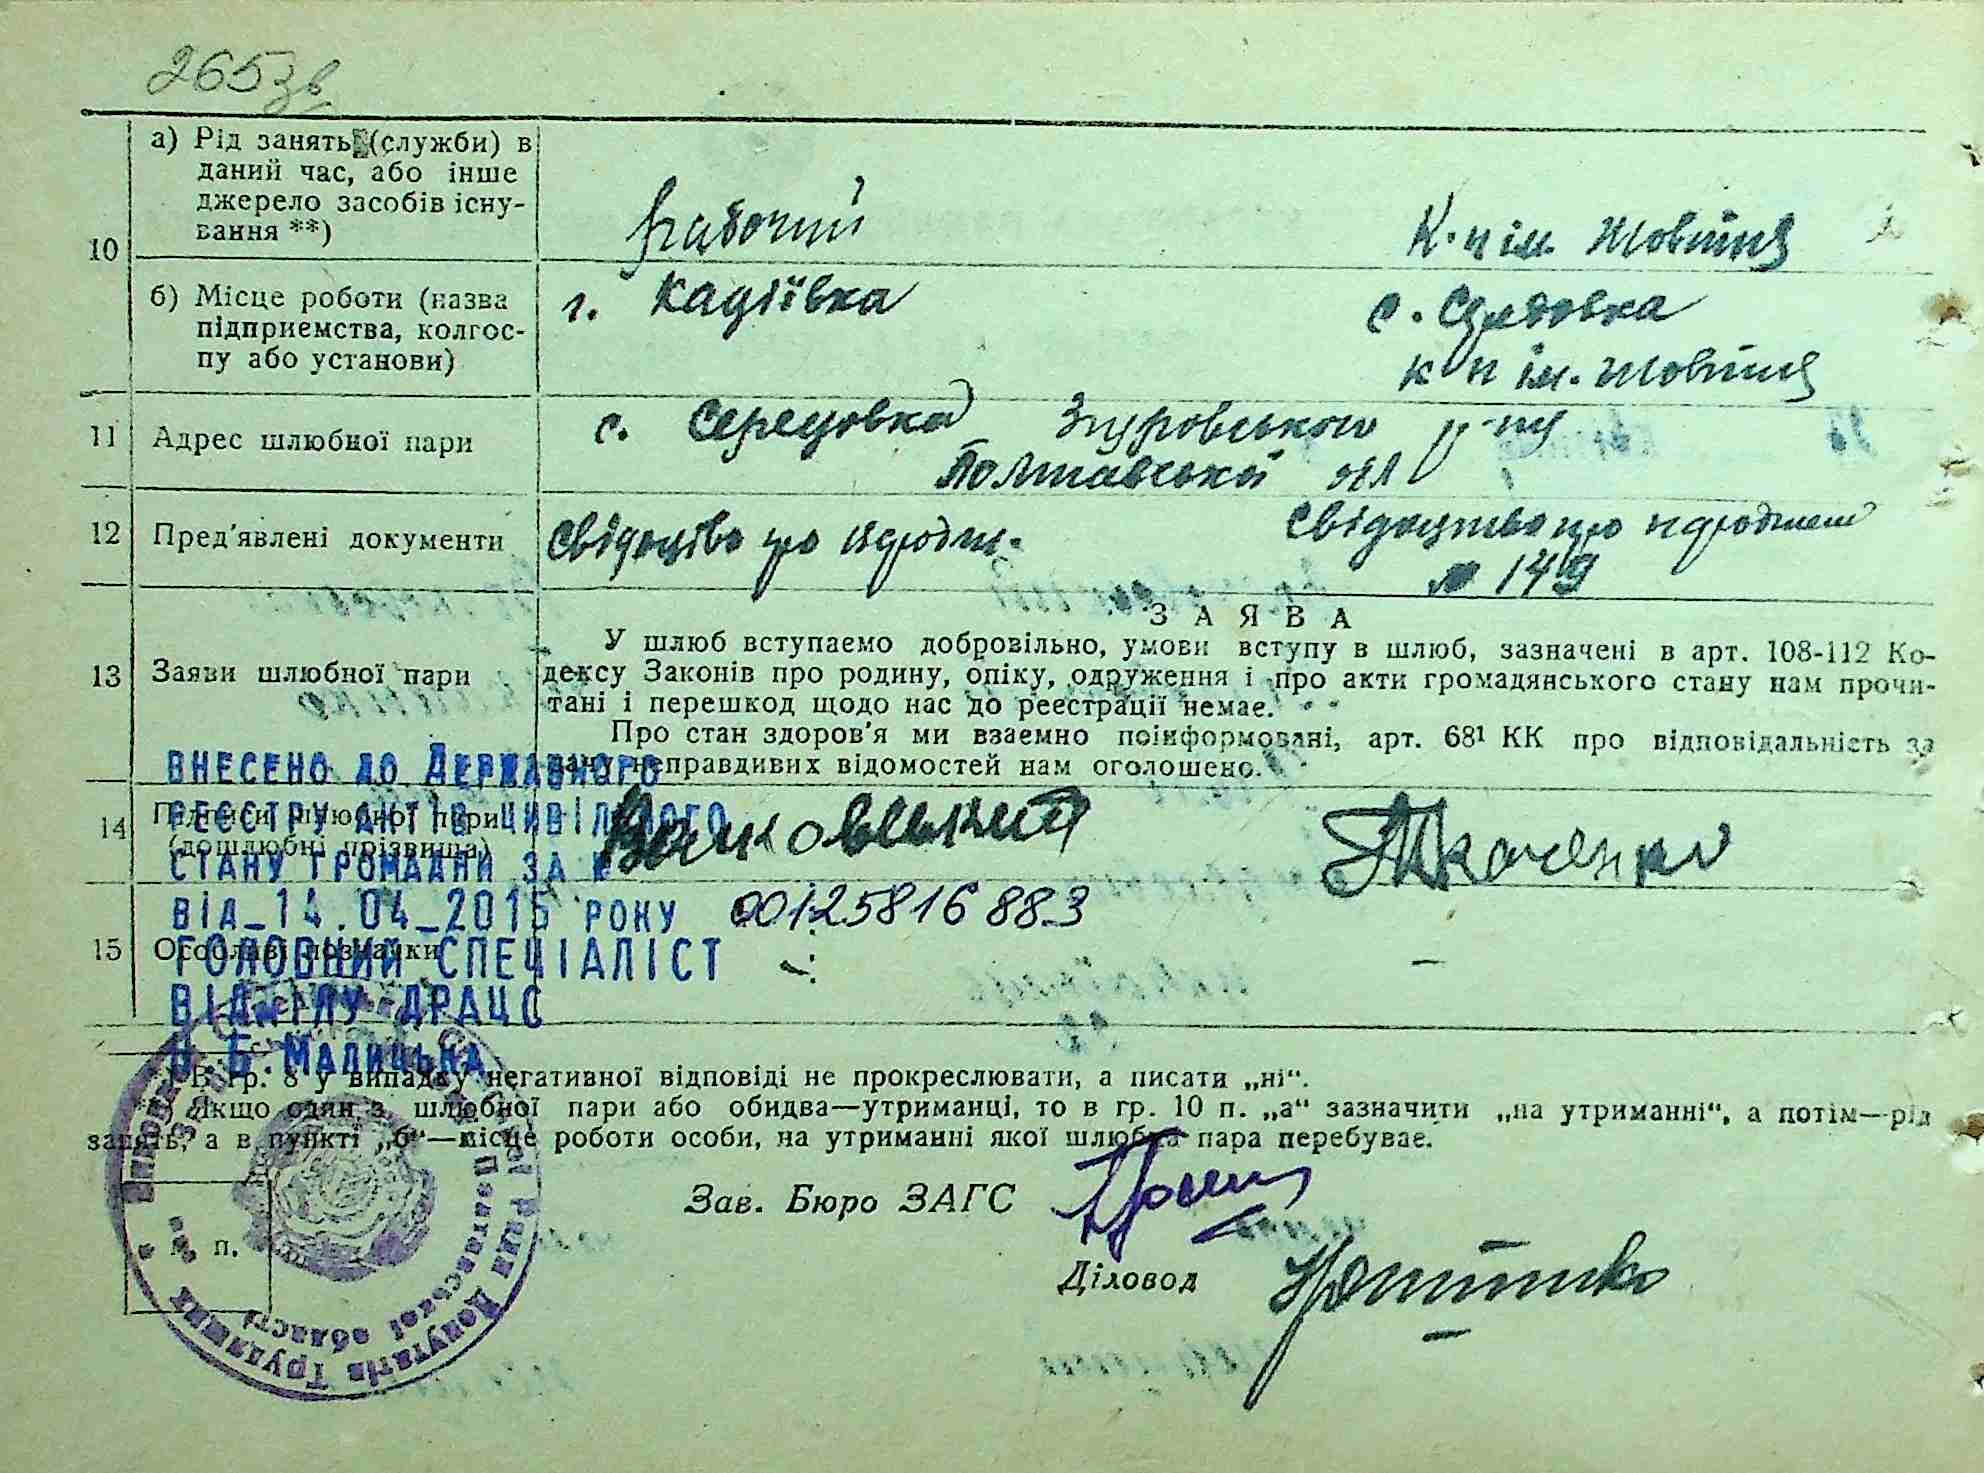 265зв
а) Рід занять (служби) в
даний час, або інше
джерело засобів існу-
вання **)
рабочий
К-п ім. Жовтня
10
б) Місце роботи (назва
підприємства, колгос-
пу або установи)
г. Кадіївка
с.
к-п ім. Жовтня
11 Адрес шлюбної пари
с. Середовка Згуровського р-ну
Полтавської обл
12 Пред'явлені документи
Свідоцтво про народж.
Свідоцтво про народження
№ 149
З А Я В А
13 Заяви шлюбної пари
У шлюб вступаємо добровільно, умови вступу в шлюб, зазначені в арт. 108-112 Ко-
дексу Законів про родину, опіку, одруження і про акти громадянського стану нам прочи-
тані і перешкод щодо нас до реєстрації немає.
Про стан здоров'я ми взаємно поінформовані, арт. 68¹ КК про відповідальність за
дачу неправдивих відомостей нам оголошено.
14 Підписи шлюбної пари
(дошлюбні прізвища)
Ткаченко
ВНЕСЕНО ДО ДЕРЖАВНОГО
РЕЄСТРУ АКТІВ ЦИВІЛЬНОГО
СТАНУ ГРОМАДЯН ЗА №
ВІД_14.04_2015 РОКУ 00125816883
15 Особливі позначки
– –
ГОЛОВНИЙ СПЕЦІАЛІСТ
ВІДДІЛУ ДРАЦС
МАЛИЦЬКА
*) В гр. 8 у випадку негативної відповіді не прокреслювати, а писати „ні“.
**) Якщо один з шлюбної пари або обидва—утриманці, то в гр. 10 п. „а“ зазначити „на утриманні“, а потім—рід
занять, а в пункті „б“—місце роботи особи, на утриманні якої шлюбна пара перебуває.
Зав. Бюро ЗАГС
М. п.
Діловод
Ради Депутатів Трудящих
Полтавської області